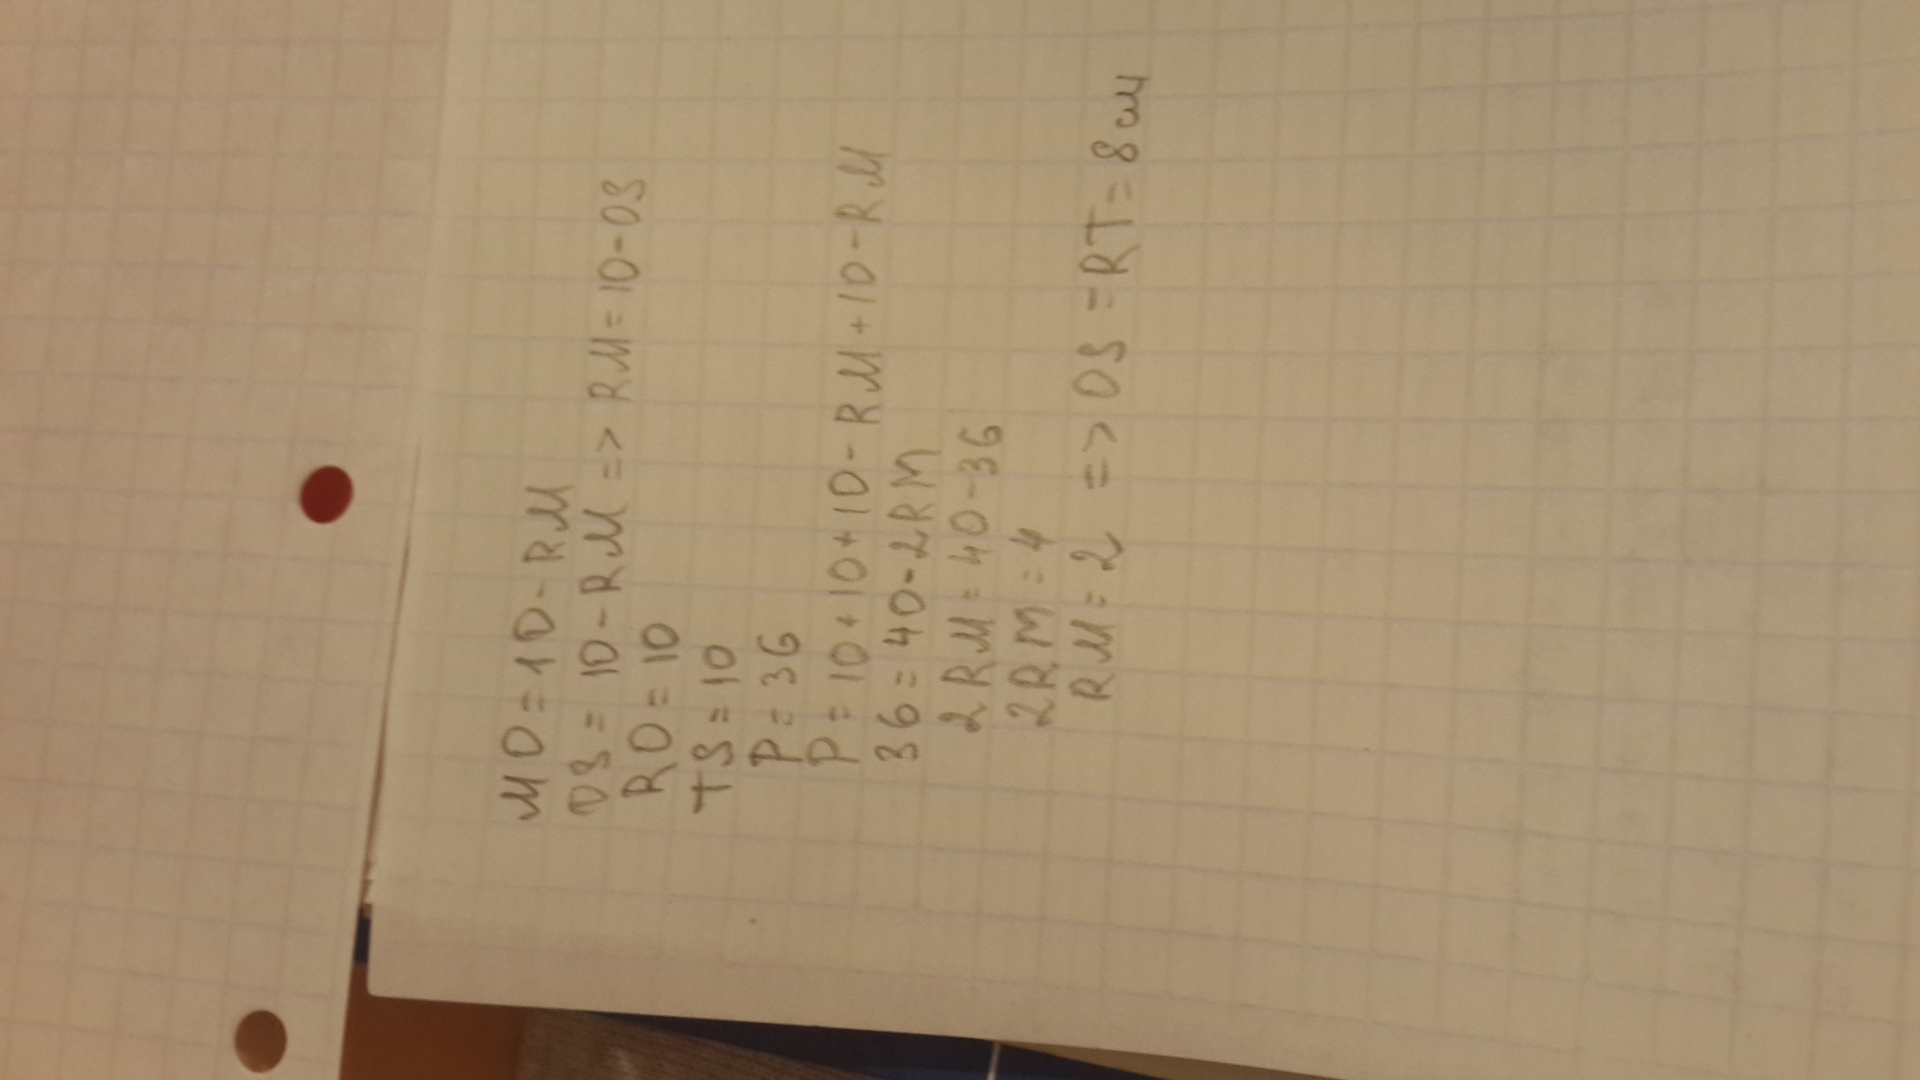 MO = 10 - RM
OS = 10 - RM => RM = 10 - OS
RO = 10
TS = 10
P = 36
P = 10 + 10 + 10 - RM + 10 - RM
36 = 40 - 2RM
2RM = 40 - 36
2RM = 4
RM = 2 => OS = RT = 8 см